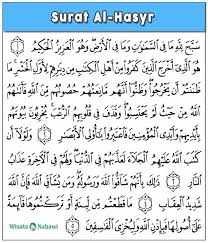 Surat Al-Hasyr
سَبَّحَ لِلَّهِ مَا فِي السَّمَٰوَٰتِ وَمَا فِي الْأَرْضِ وَهُوَ الْعَزِيزُ الْحَكِيمُ
هُوَ الَّذِي أَخْرَجَ الَّذِينَ كَفَرُوا مِنْ أَهْلِ الْكِتَٰبِ مِن دِيَٰرِهِمْ لِأَوَّلِ الْحَشْرِ مَا
ظَنَنتُمْ أَن يَخْرُجُوا وَظَنُّوا أَنَّهُم مَّانِعَتُهُمْ حُصُونُهُم مِّنَ اللَّهِ فَأَتَىٰهُمُ
اللَّهُ مِنْ حَيْثُ لَمْ يَحْتَسِبُوا وَقَذَفَ فِي قُلُوبِهِمُ الرُّعْبَ يُخْرِبُونَ بُيُوتَهُم
بِأَيْدِيهِمْ وَأَيْدِي الْمُؤْمِنِينَ فَاعْتَبِرُوا يَٰأُولِي الْأَبْصَٰرِ ٢ وَلَوْلَا أَن كَتَبَ
اللَّهُ عَلَيْهِمُ الْجَلَاءَ لَعَذَّبَهُمْ فِي الدُّنْيَا وَلَهُمْ فِي الْآخِرَةِ عَذَابُ
النَّارِ ٣ ذَٰلِكَ بِأَنَّهُمْ شَاقُّوا اللَّهَ وَرَسُولَهُ وَمَن يُشَاقِّ اللَّهَ فَإِنَّ اللَّهَ
شَدِيدُ الْعِقَابِ ٤ مَا قَطَعْتُم مِّن لِّينَةٍ أَوْ تَرَكْتُمُوهَا قَائِمَةً
عَلَىٰ أُصُولِهَا فَبِإِذْنِ اللَّهِ وَلِيُخْزِيَ الْفَٰسِقِينَ ٥
Wisata Nabawi